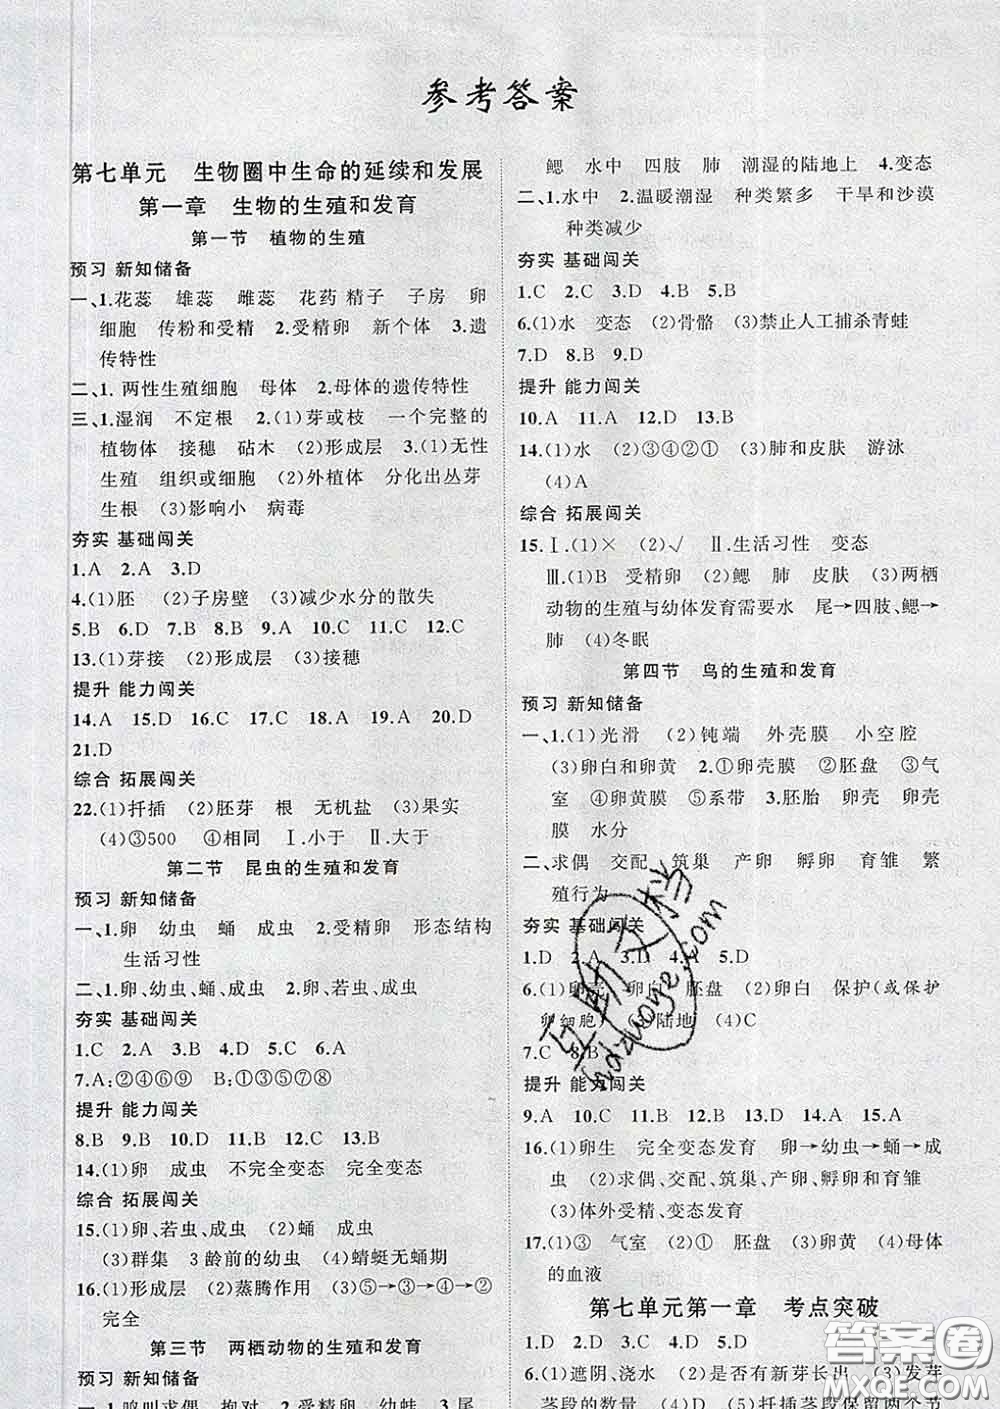 参考答案
第七单元 生物圈中生命的延续和发展
第一章 生物的生殖和发育
第一节 植物的生殖
预习 新知储备
一、1.花蕊 雄蕊 雌蕊 花药 精子 子房 卵
细胞 传粉和受精 2.受精卵 新个体 3.遗
传特性
二、1.两性生殖细胞 母体 2.母体的遗传特性
三、1.湿润 不定根 2.(1)芽或枝 一个完整的
植物体 接穗 砧木 (2)形成层 3.(1)无性
生殖 组织或细胞 (2)外植体 分化出丛芽
生根 (3)影响小 病毒
夯实 基础闯关
1.A 2.A 3.D
4.(1)胚 (2)子房壁 (3)减少水分的散失
5.B 6.D 7.B 8.B 9.A 10.C 11.C 12.C
13.(1)芽接 (2)形成层 (3)接穗
提升 能力闯关
14.A 15.D 16.C 17.C 18.A 19.A 20.D
21.D
综合 拓展闯关
22.(1)扦插 (2)胚芽 根 无机盐 (3)果实
(4)③500 ④相同 Ⅰ.小于 Ⅱ.大于
第二节 昆虫的生殖和发育
预习 新知储备
一、1.卵 幼虫 蛹 成虫 2.受精卵 形态结构
生活习性
二、1.卵、幼虫、蛹、成虫 2.卵、若虫、成虫
夯实 基础闯关
1.C 2.A 3.B 4.D 5.C 6.A
7.A:②④⑥⑨ B:①③⑤⑦⑧
提升 能力闯关
8.B 9.B 10.D 11.C 12.B 13.B
14.(1)卵 成虫 不完全变态 完全变态
综合 拓展闯关
15.(1)卵、若虫、成虫 (2)蛹 成虫
(3)群集 3龄前的幼虫 (4)蜻蜓无蛹期
16.(1)形成层 (2)蒸腾作用 (3)⑤→③→④→②
完全
第三节 两栖动物的生殖和发育
预习 新知储备
一、1.鸣叫求偶 抱对 2.卵 3.蝌蚪 水中 尾
鳃 水中 四肢 肺 潮湿的陆地上 4.变态
二、1.水中 2.温暖潮湿 种类繁多 干旱和沙漠
种类减少
夯实 基础闯关
1.C 2.C 3.D 4.B 5.B
6.(1)水 变态 (2)骨骼 (3)禁止人工捕杀青蛙
7.D 8.B 9.D
提升 能力闯关
10.A 11.A 12.D 13.B
14.(1)水 (2)③④②① (3)肺和皮肤 游泳
(4)A
综合 拓展闯关
15.Ⅰ.(1)× (2)√ Ⅱ.生活习性 变态
Ⅲ.(1)B 受精卵 (2)鳃 肺 皮肤 (3)两栖
动物的生殖与幼体发育需要水 尾→四肢、鳃→
肺 (4)冬眠
第四节 鸟的生殖和发育
预习 新知储备
一、1.(1)光滑 (2)钝端 外壳膜 小空腔
(3)卵白和卵黄 2.①卵壳膜 ②胚盘 ③气
室 ④卵黄膜 ⑤系带 3.胚胎 卵壳 卵壳
膜 水分
二、求偶 交配 筑巢 产卵 孵卵 育雏 繁
殖行为
夯实 基础闯关
1.D 2.A 3.D 4.A 5.D
6.(1)卵黄 卵白 胚盘 (2)卵白 保护(或保护
卵细胞) (3)陆地 (4)C
7.C 8.B
提升 能力闯关
9.A 10.C 11.B 12.B 13.D 14.A 15.A
16.(1)卵生 完全变态发育 卵→幼虫→蛹→成
虫 (2)求偶、交配、筑巢、产卵、孵卵和育雏
(3)体外受精、变态发育
17.(1)③ 气室 (2)① 胚盘 (3)卵黄 (4)母体
的血液
第七单元第一章 考点突破
1.D 2.C 3.A 4.D 5.D
6.(1)遮阴、浇水 (2)是否有新芽长出 (3)发芽
茎段的数量 (4)B (5)扦插茎段保留两个节
互助文档
hdzuoye.com
答案圈
MXQE.COM